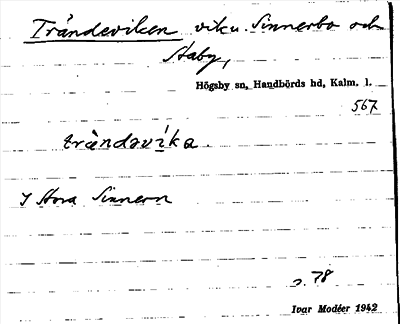 Trändeviken vik u. Sinnerbo och
Staby,
Högsby sn, Handbörds hd, Kalm. l.
567
trändavika.
I Stora Sinnern
s. 78
Ivar Modéer 1942